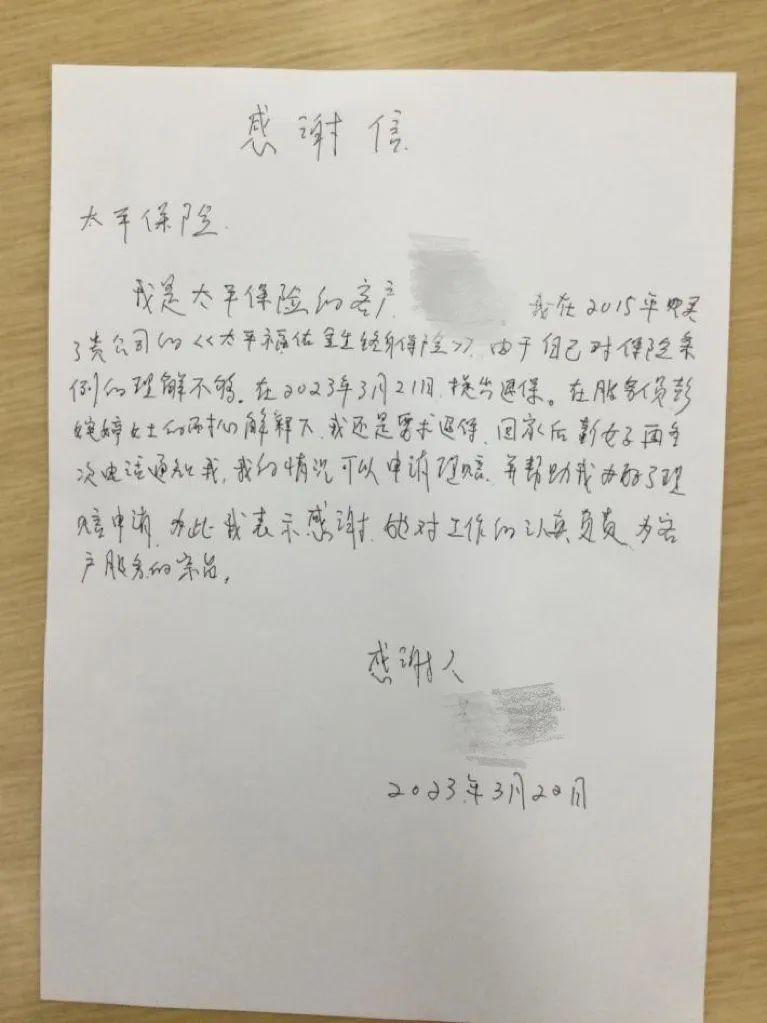 感谢信
太平保险.
我是太平保险的客户 我在2015年购买
了贵公司的《太平福佑金生终身保险》,由于自己对保险条
例的理解不够。在2023年3月21日.提出退保。在服务员彭
婉婷女士的 解释下,我还是要求退保,回家后彭女子再
次电话通知我,我的情况可以申请理赔.并帮助我办好了理
赔申请,为此我表示感谢.她对工作的认真负责,为客
户服务的
感谢人
2023年3月28日